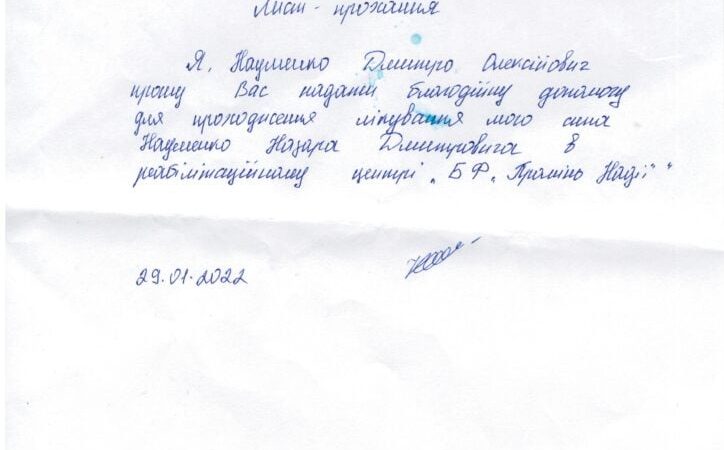 Лист - прохання
Я, Науменко Дмитро Олексійович
прошу Вас надати благодійну допомогу
для проходження лікування мого сина
Науменко Назара Дмитровича в
реабілітаційному центрі „БФ „Промінь Надії" "
29.01.2022